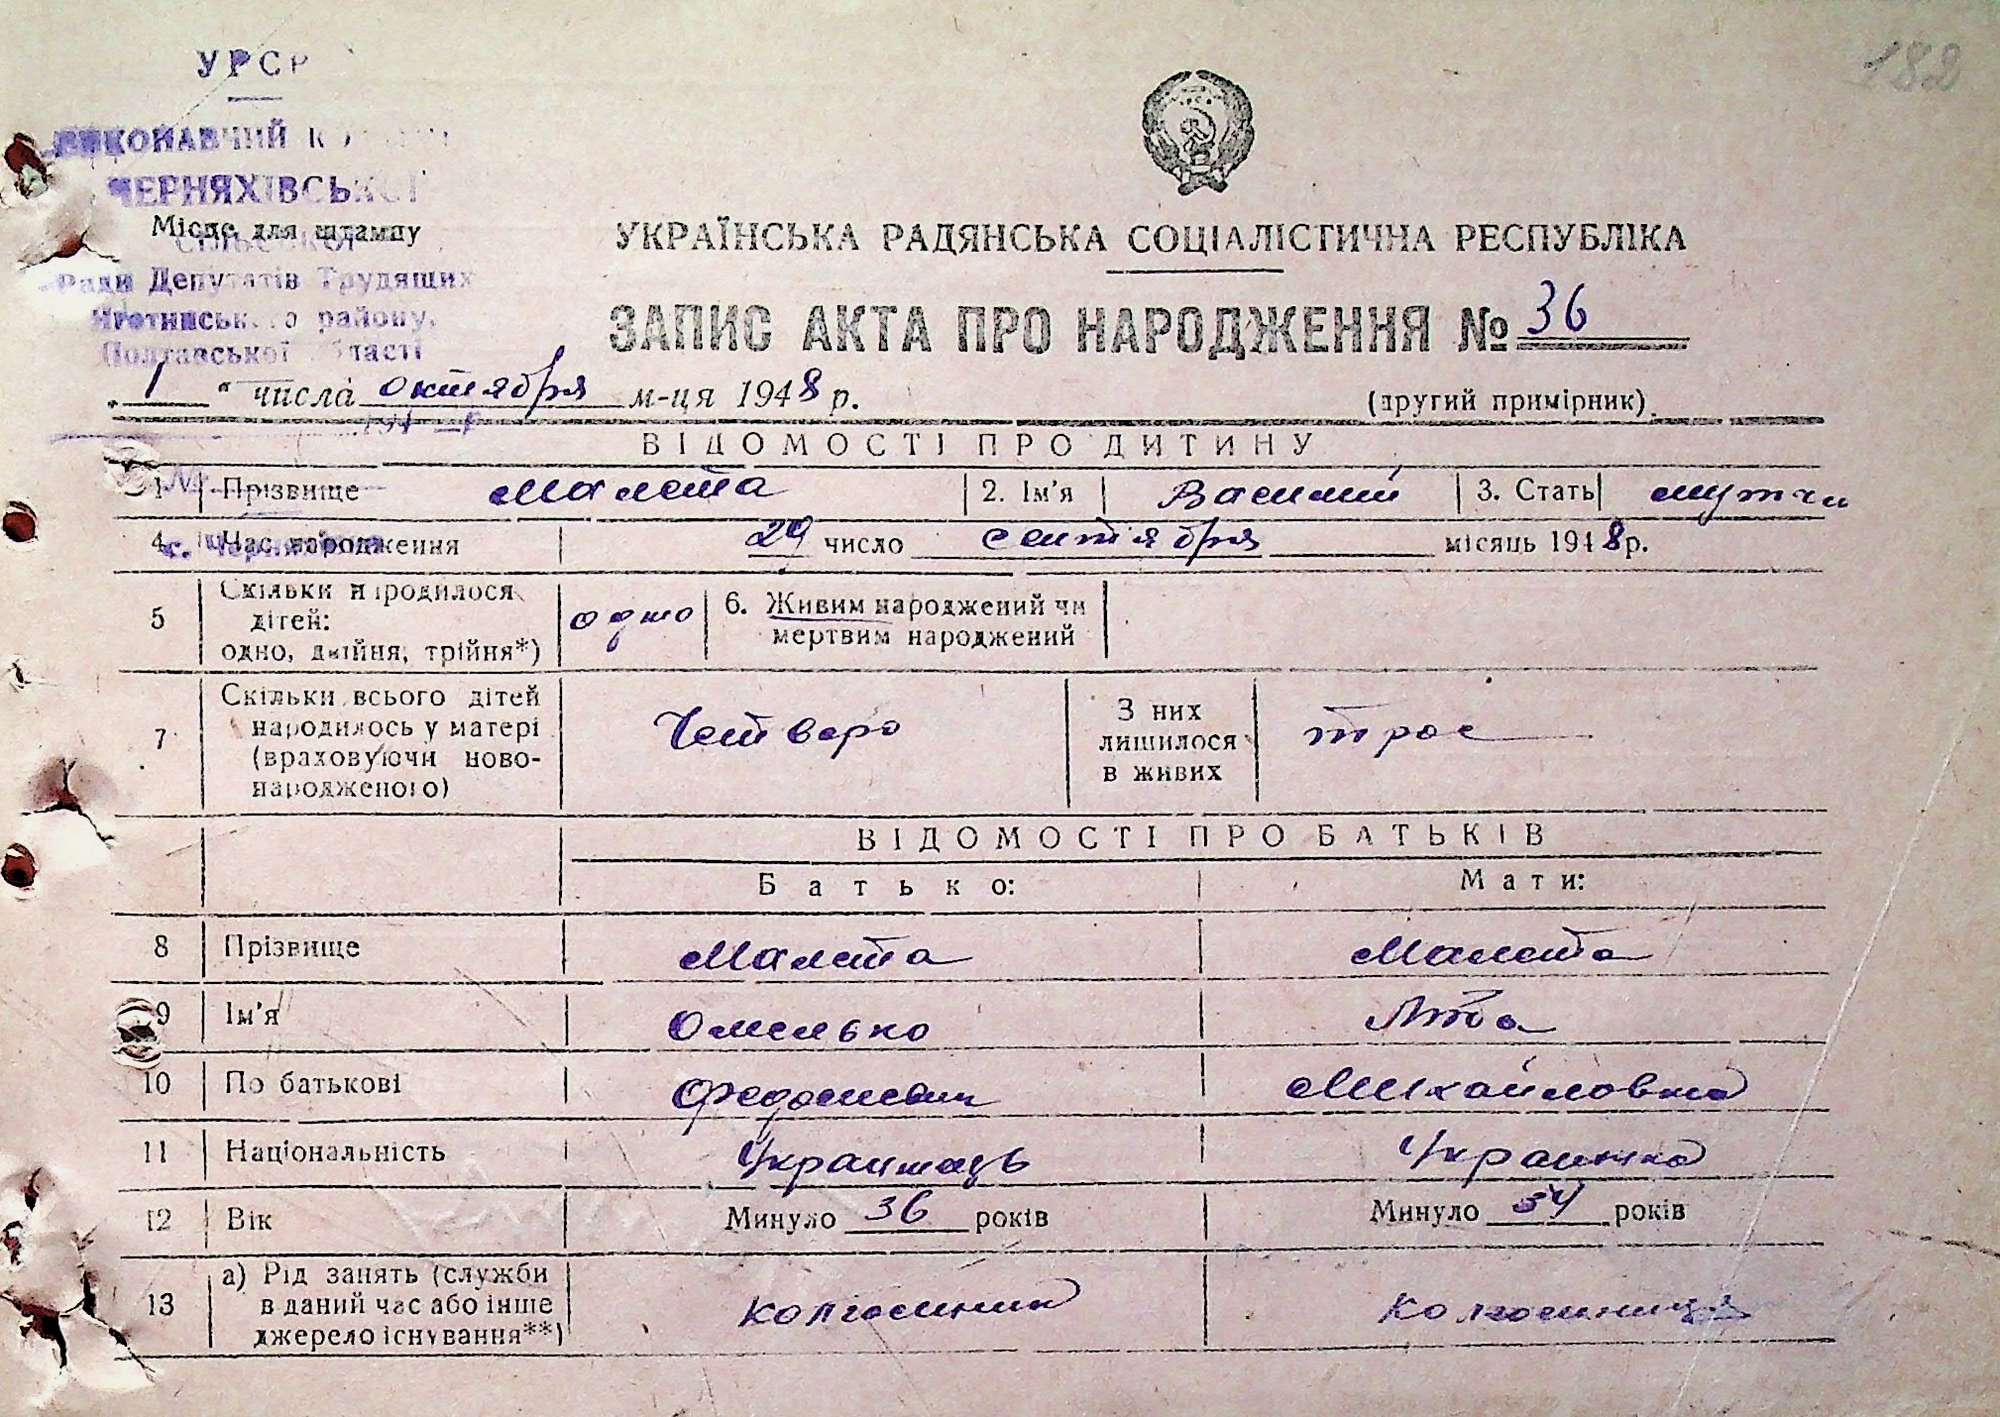 182
УРСР
ВИКОНАВЧИЙ
ЧЕРНЯХІВСЬКОЇ
Місце для штампу
Ради Депутатів Трудящих
Яготинського району,
Полтавської області
УКРАЇНСЬКА РАДЯНСЬКА СОЦІАЛІСТИЧНА РЕСПУБЛІКА
ЗАПИС АКТА ПРО НАРОДЖЕННЯ № 36
„1“ числа октября м-ця 1948 р.
(другий примірник)
ВІДОМОСТІ ПРО ДИТИНУ
1 Прізвище Малета 2. Ім'я Василий 3. Стать
4 Час народження 29 число сентября місяць 1948 р.
5 Скільки народилося дітей: одно, двійня, трійня*) одно 6. Живим народжений чи мертвим народжений
7 Скільки всього дітей народилось у матері (враховуючи новонародженого) Четверо З них лишилося в живих трое
ВІДОМОСТІ ПРО БАТЬКІВ
Батько: Мати:
8 Прізвище Малета Малета
9 Ім'я Омелько
10 По батькові Михайловна
11 Національність Украинець Украинка
12 Вік Минуло 36 років Минуло 34 років
13 а) Рід занять (служби в даний час або інше джерело існування**) колгоспник колгоспниця